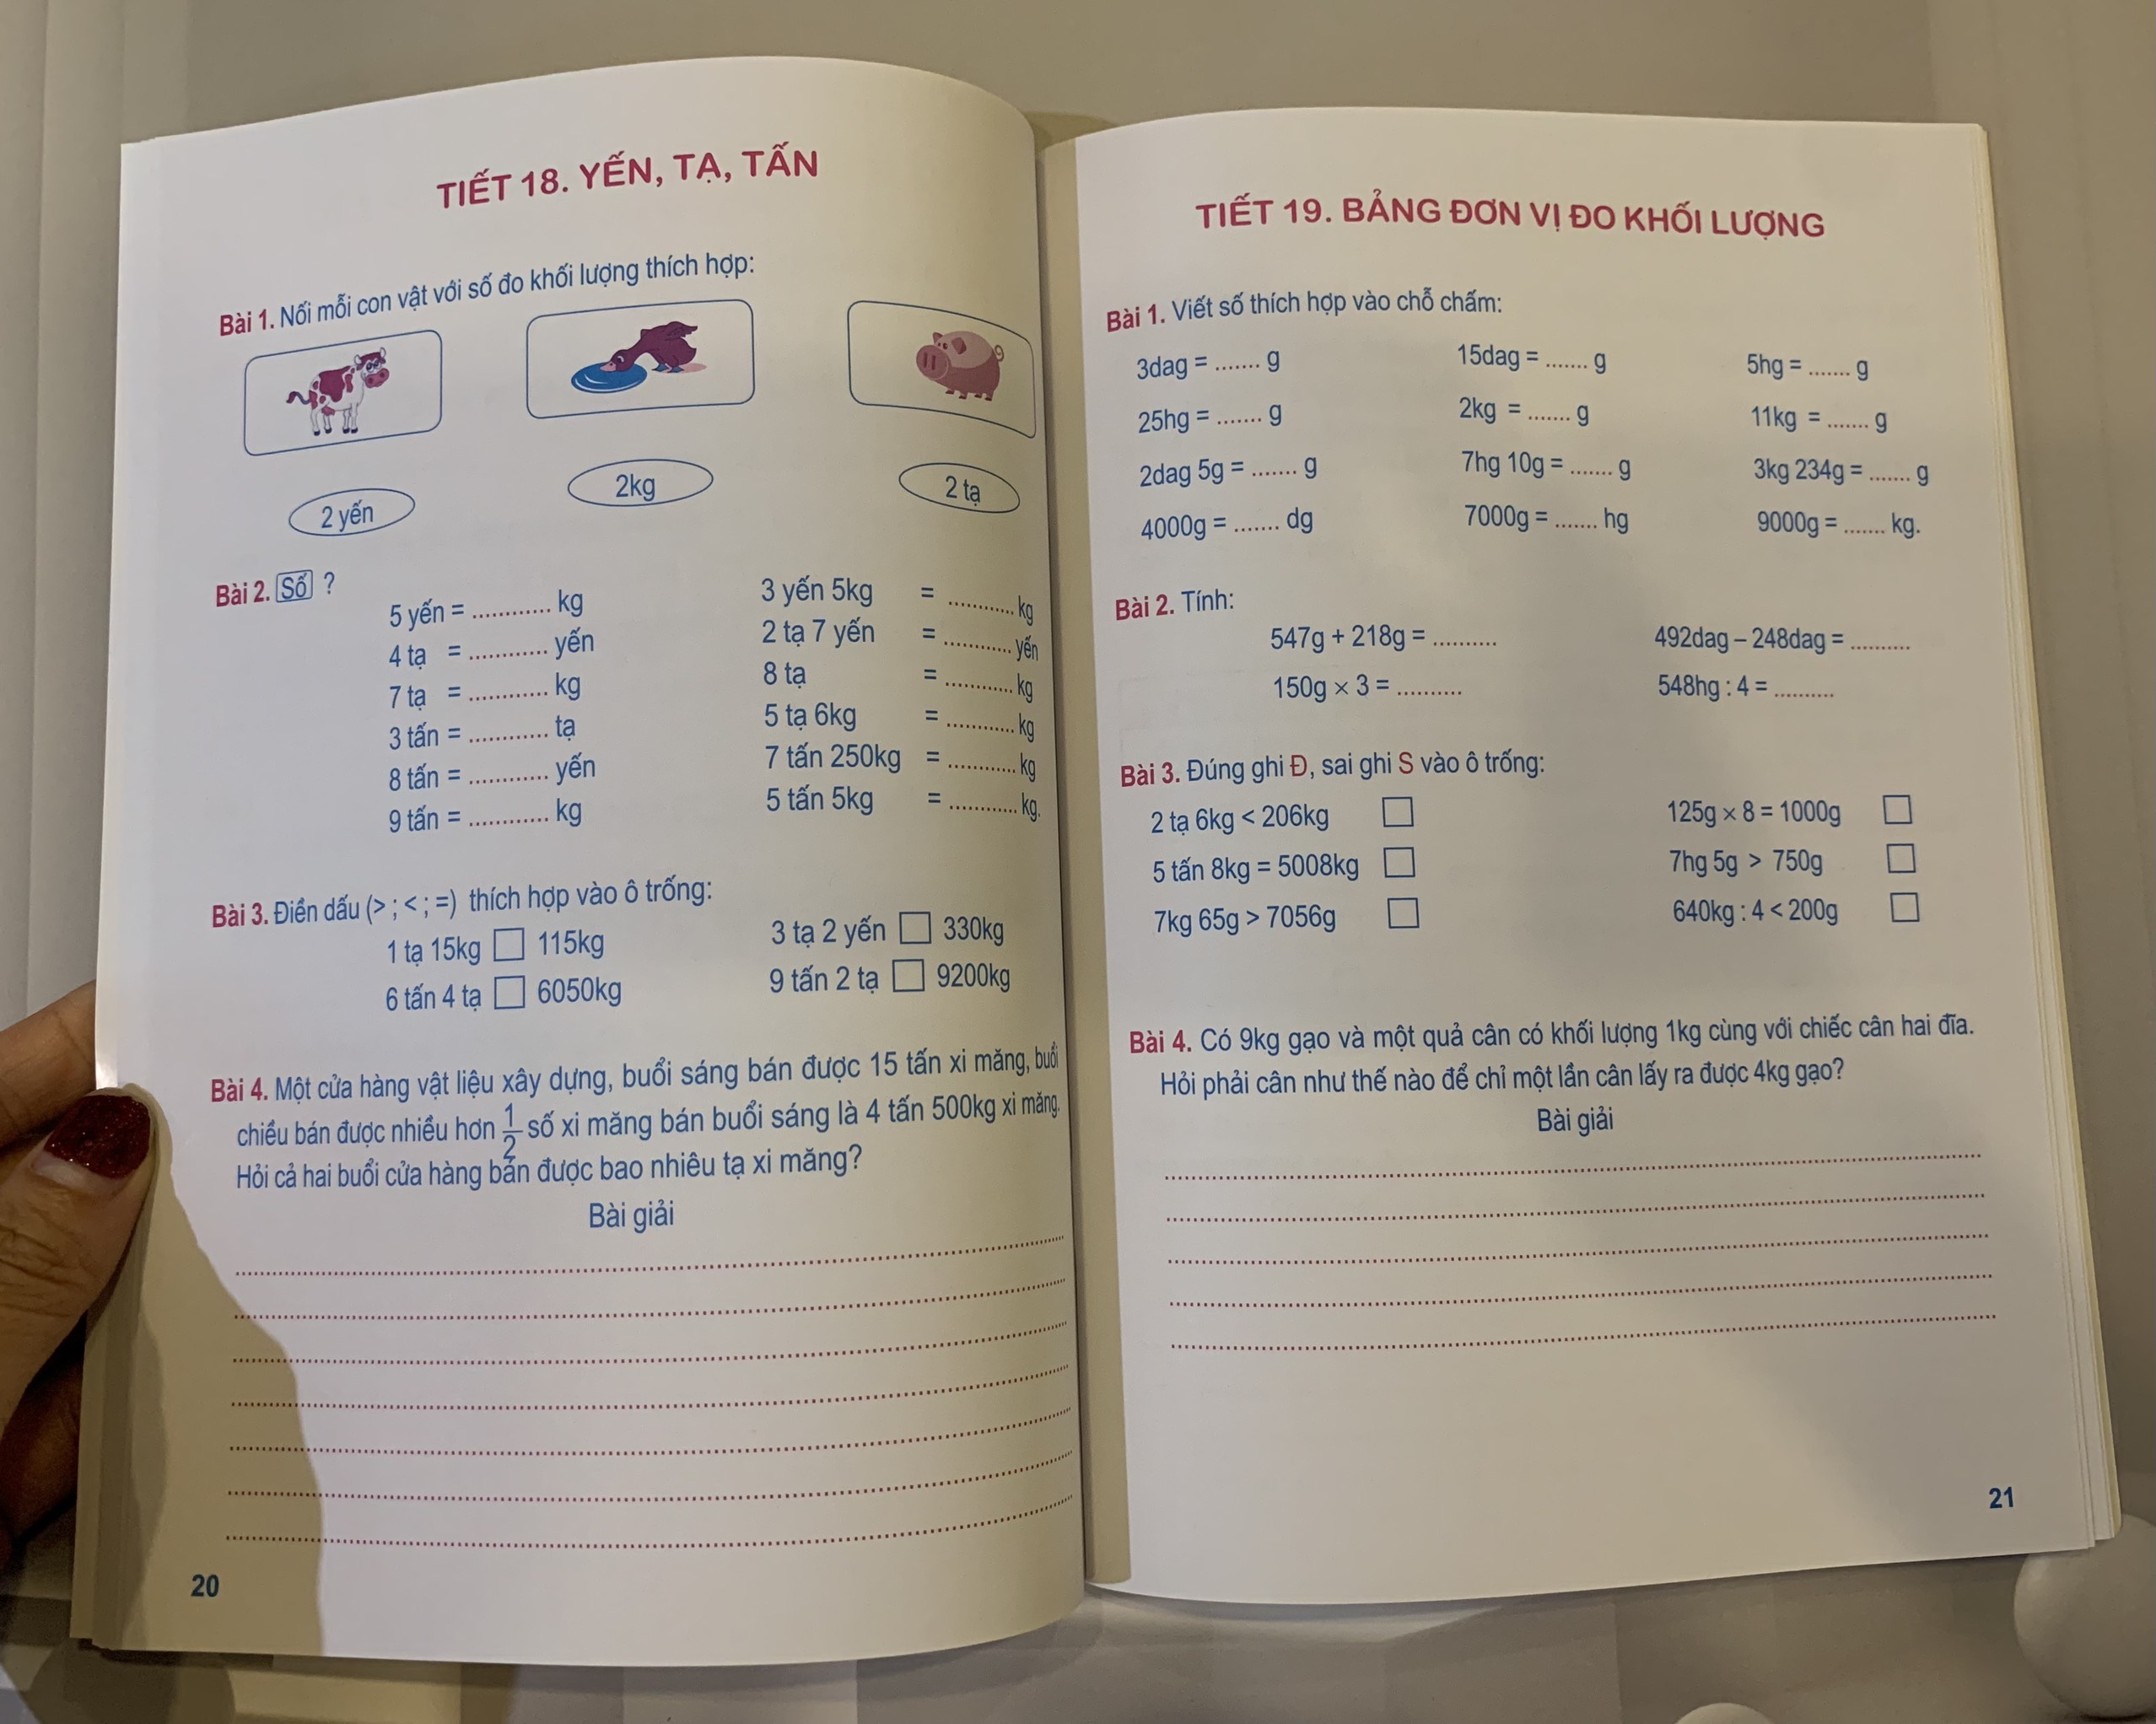 TIẾT 18. YẾN, TẠ, TẤN
Bài 1. Nối mỗi con vật với số đo khối lượng thích hợp:
2 yến
2kg
2 tạ
Bài 2. Số ?
5 yến = ............ kg
4 tạ = ............ yến
7 tạ = ............ kg
3 tấn = ............ tạ
8 tấn = ............ yến
9 tấn = ............ kg
3 yến 5kg = ............ kg
2 tạ 7 yến = ............ yến
8 tạ = ............ kg
5 tạ 6kg = ............ kg
7 tấn 250kg = ............ kg
5 tấn 5kg = ............ kg.
Bài 3. Điền dấu (> ; < ; =) thích hợp vào ô trống:
1 tạ 15kg □ 115kg
6 tấn 4 tạ □ 6050kg
3 tạ 2 yến □ 330kg
9 tấn 2 tạ □ 9200kg
Bài 4. Một cửa hàng vật liệu xây dựng, buổi sáng bán được 15 tấn xi măng, buổi
chiều bán được nhiều hơn 1/2 số xi măng bán buổi sáng là 4 tấn 500kg xi măng.
Hỏi cả hai buổi cửa hàng bán được bao nhiêu tạ xi măng?
Bài giải
20
TIẾT 19. BẢNG ĐƠN VỊ ĐO KHỐI LƯỢNG
Bài 1. Viết số thích hợp vào chỗ chấm:
3dag = ....... g 15dag = ....... g 5hg = ....... g
25hg = ....... g 2kg = ....... g 11kg = ....... g
2dag 5g = ....... g 7hg 10g = ....... g 3kg 234g = ....... g
4000g = ....... dg 7000g = ....... hg 9000g = ....... kg.
Bài 2. Tính:
547g + 218g = .......... 492dag – 248dag = ..........
150g × 3 = .......... 548hg : 4 = ..........
Bài 3. Đúng ghi Đ, sai ghi S vào ô trống:
2 tạ 6kg < 206kg □ 125g × 8 = 1000g □
5 tấn 8kg = 5008kg □ 7hg 5g > 750g □
7kg 65g > 7056g □ 640kg : 4 < 200g □
Bài 4. Có 9kg gạo và một quả cân có khối lượng 1kg cùng với chiếc cân hai đĩa.
Hỏi phải cân như thế nào để chỉ một lần cân lấy ra được 4kg gạo?
Bài giải
21